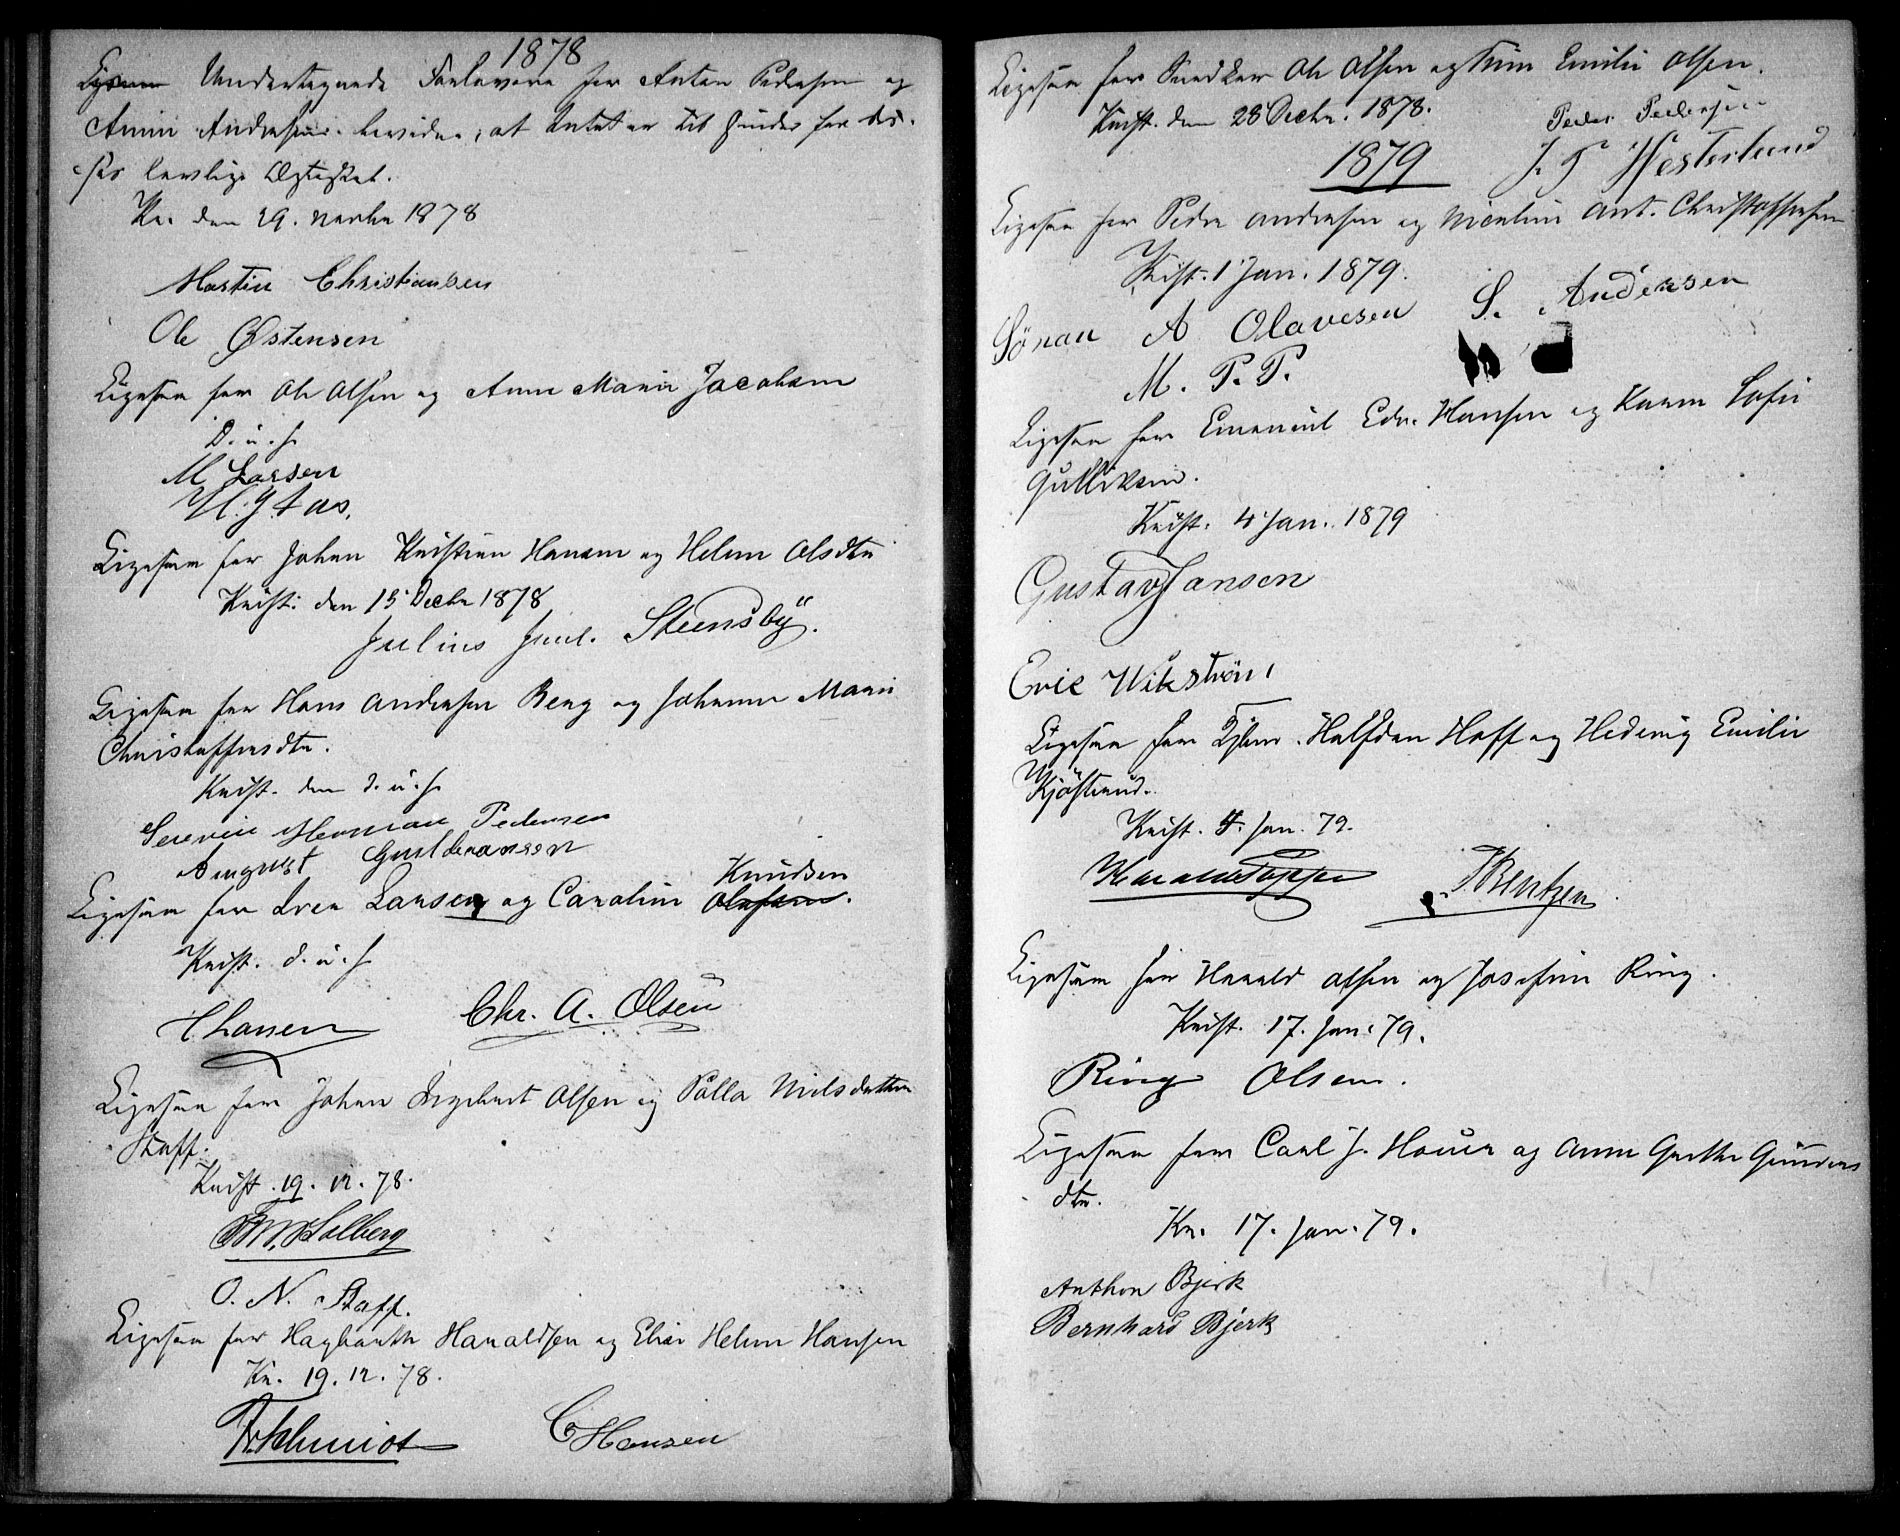 1878
Ligesaa Undertegnede Forlovere for Anton Pedersen og
Anne Andersen bevidne, at Intet er til Hinder for dis-
ses lovlige Ægteskab.
Kr. den 29. novbr 1878
Martin Christiansen
Ole Østensen
Ligesaa for Ole Olsen og Anne Marie Jacobsen
D. u. s.
M Larsen
Ligesaa for Johan Kristian Hansen og Helene Olsdtr
Krist. den 15 Decbr 1878
Julius Juul. Steensby.
Ligesaa for Hans Andersen Berg og Johanne Marie
Christoffersdtr.
Krist. den d. u. s.
Severin Herman Pedersen
August Gulbransen
Ligesaa for Iver Larsen og Caroline Olafsen Knudsen.
Krist. d. u. s.
C Larsen Chr. A. Olsen
Ligesaa for Johan Ingebret Olsen og Palla Nielsdatter
Staff.
Krist. 19. 12. 78.
M. Solberg
O. N. Staff.
Ligesaa for Hagbarth Haraldsen og Elise Helene Hansen
Kr. 19. 12. 78.
Fr. Schmidt C Hansen
Ligesaa for Snedker Ole Olsen og Trine Emilie Olsen.
Krist. den 28 Decbr. 1878.
Peder Pedersen
J. P. Westerlund
1879
Ligesaa for Peder Andersen og Nicoline Ant. Christoffersen
Krist. 1 Jan. 1879.
Sönan A Olavesen S. Andersen
M. P. P.
Ligesaa for Emanuel Edv. Hansen og Karen Sofie
Gulliksen.
Krist. 4 Jan. 1879
Gustav Jansen
Eric Wikström
Ligesaa for Halfdan Hoff og Hedevig Emilie
Kjöstrud.
Krist. 4. Jan. 79.
Ligesaa for Harald Olsen og Josefine Ring.
Krist. 17. Jan. 79.
Ring Olsen.
Ligesaa for Carl J. Hauer og Anne Grethe Gunders
dtr.
Kr. 17. Jan. 79.
Anthon Bjerk
Bernhard Bjerk